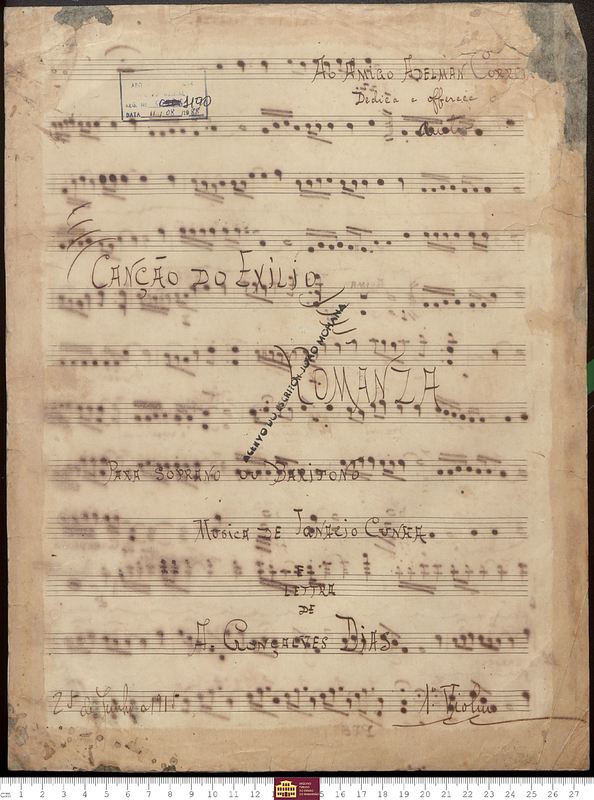 Ao Amigo Adelman Corrêa
Dedica e offerece o
Autor
1190
DATA 11 / 08 / 1988
CANÇÃO DO EXÍLIO
ACERVO DO ESCRITOR JOÃO MOHANA
ROMANZA
PARA SOPRANO OU BARITONO
MUSICA DE IGNACIO CUNHA.
E
LETTRA
DE
A. GONÇALVES DIAS.
25 de Junho 1915
1º Violino
cm 1 2 3 4 5 6 7 8 9 10 11 12 15 16 17 18 19 20 21 22 23 24 25 26 27